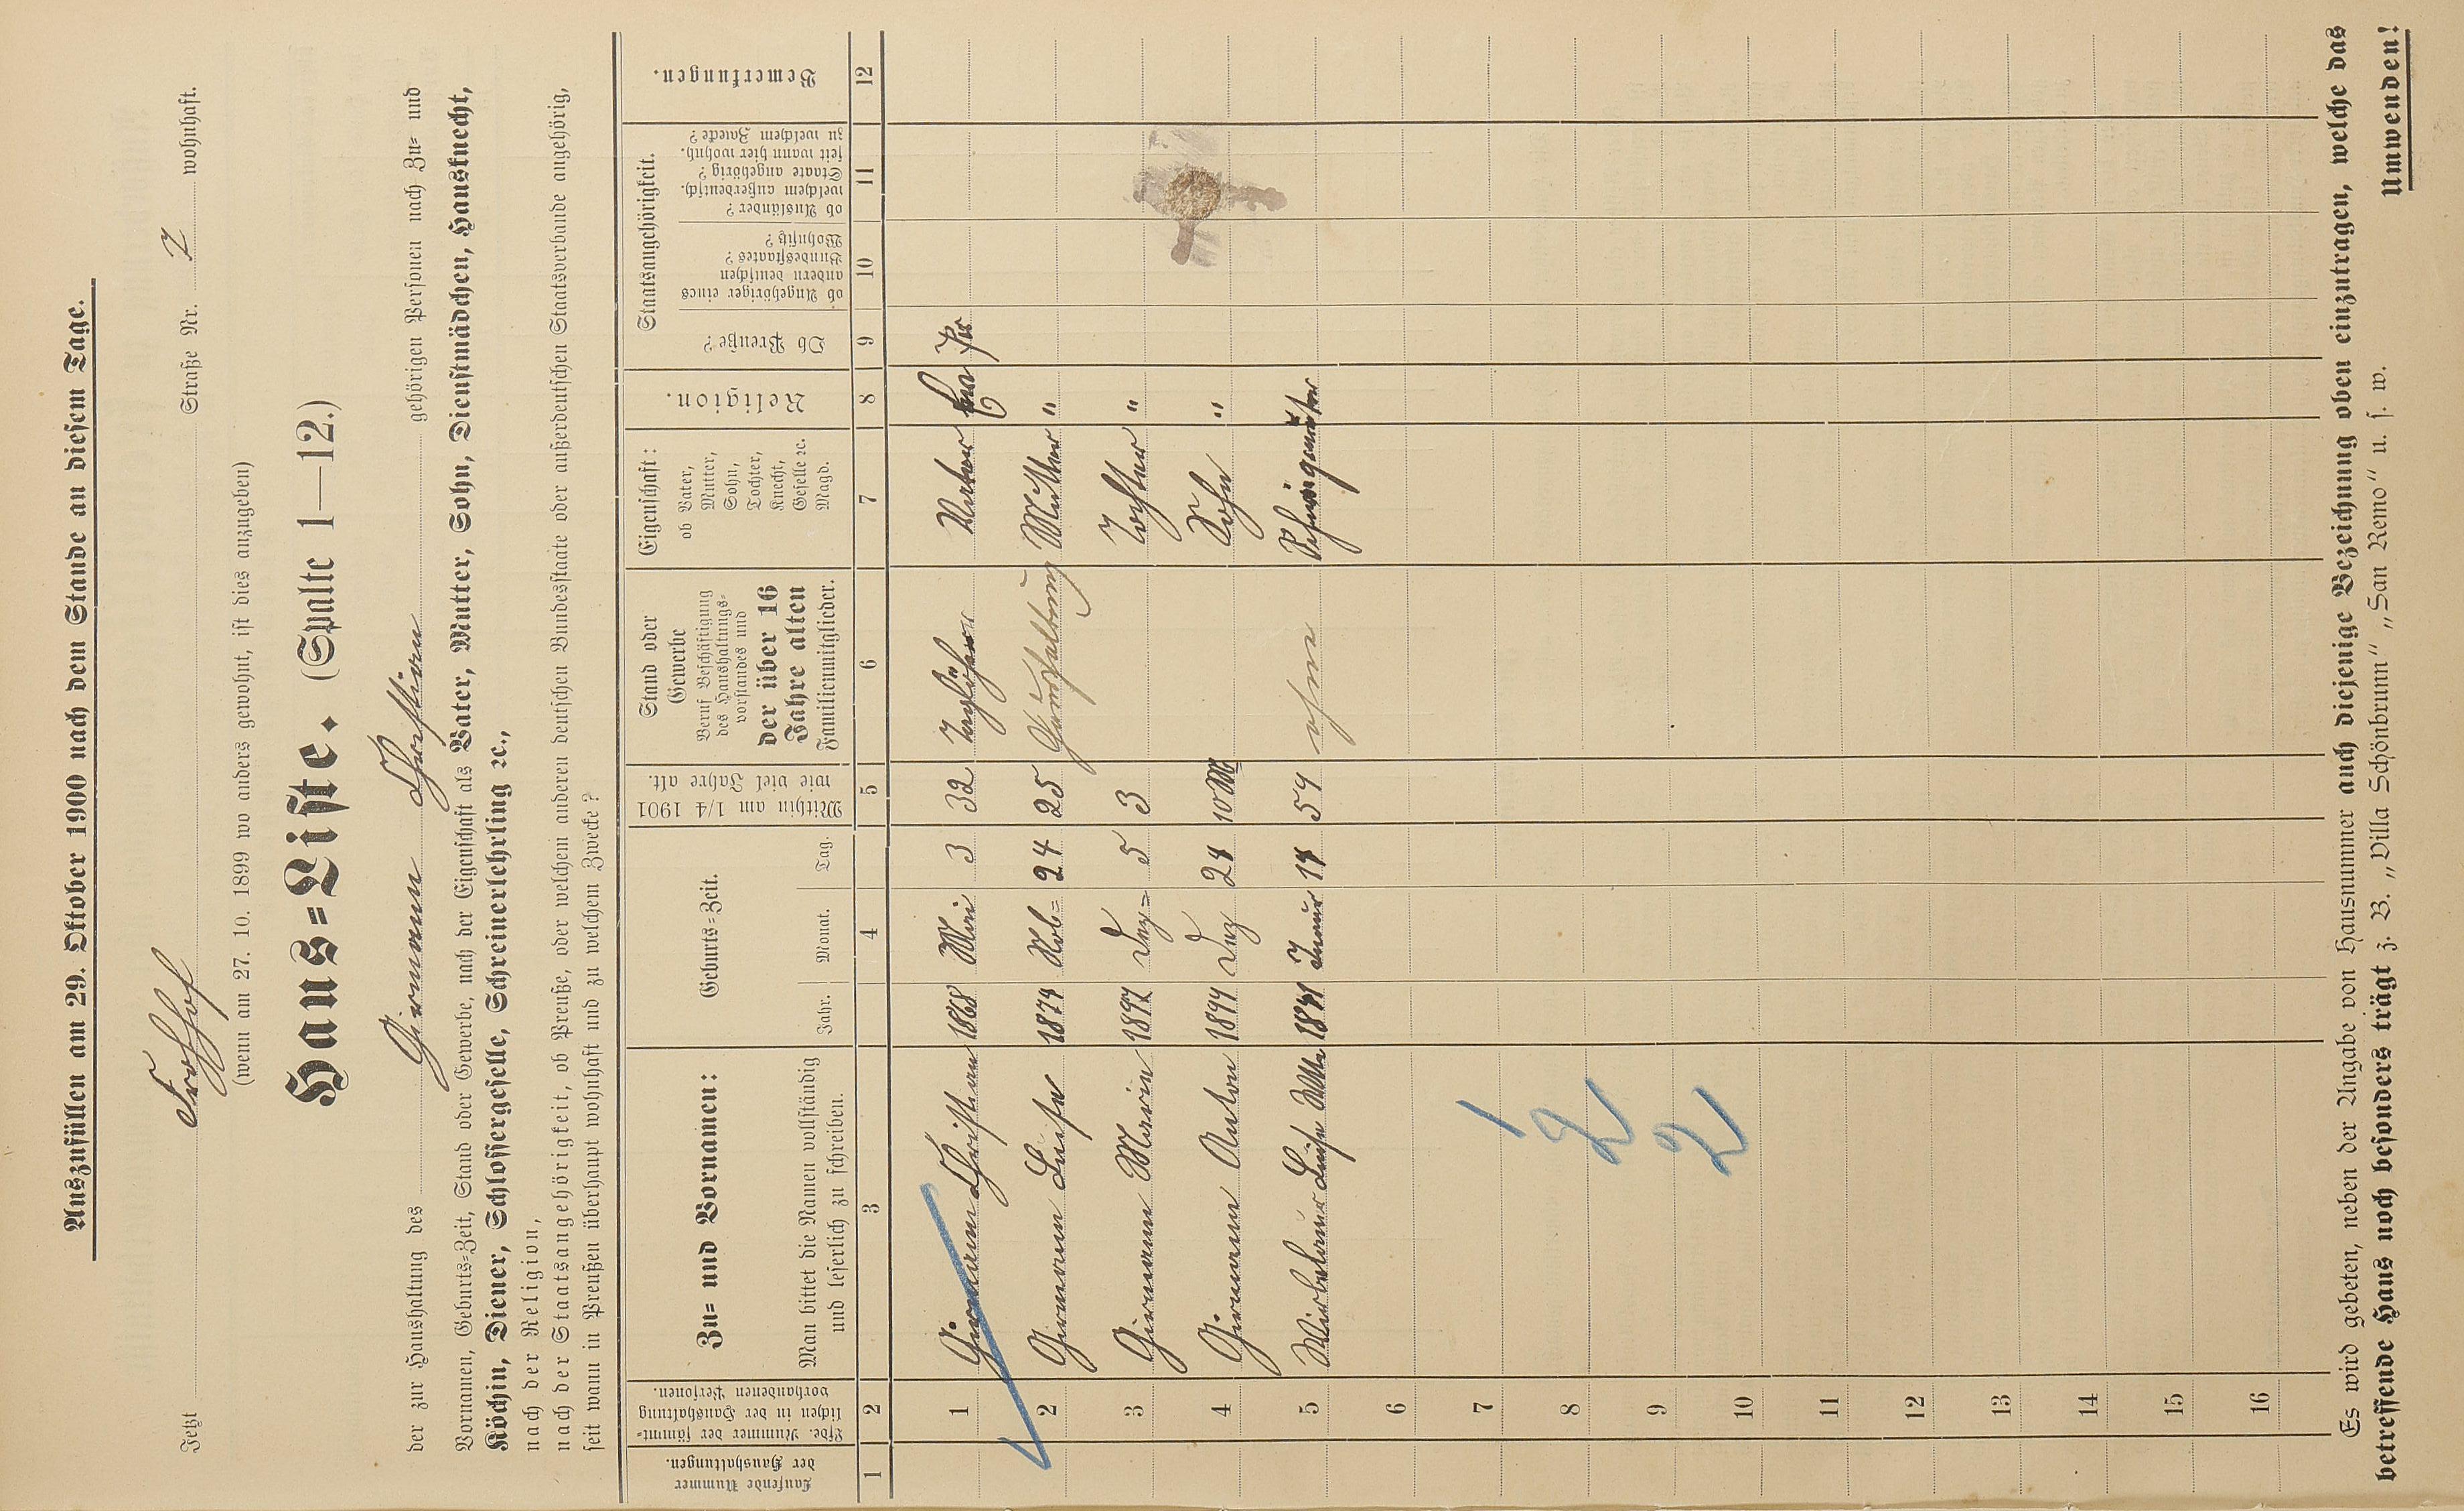 Auszufüllen am 29. Oktober 1900 nach dem Stande an diesem Tage.
Jetzt Frohhof Straße Nr. 7 wohnhaft.
(wenn am 27. 10. 1899 wo anders gewohnt, ist dies anzugeben)
Haus=Liste. (Spalte 1—12.)
der zur Haushaltung des Girmann Christian gehörigen Personen nach Zu= und
Vornamen, Geburts=Zeit, Stand oder Gewerbe, nach der Eigenschaft als Vater, Mutter, Sohn, Dienstmädchen, Hausknecht,
Köchin, Diener, Schlossergeselle, Schreinerlehrling ꝛc.,
nach der Religion,
nach der Staatsangehörigkeit, ob Preuße, oder welchem anderen deutschen Bundesstaate oder außerdeutschen Staatsverbande angehörig,
seit wann in Preußen überhaupt wohnhaft und zu welchem Zwecke?
Laufende Nummer der Haushaltungen.
Lfde. Nummer der sämmt=lichen in der Haushaltung vorhandenen Personen.
Zu= und Vornamen:
Man bittet die Namen vollständig
und leserlich zu schreiben.
Geburts=Zeit.
Jahr. Monat. Tag.
Mithin am 1/4 1901
wie viel Jahre alt.
Stand oder
Gewerbe
Beruf Beschäftigung
des Haushaltungs=
vorstandes und
der über 16
Jahre alten
Familienmitglieder.
Eigenschaft:
ob Vater,
Mutter,
Sohn,
Tochter,
Knecht,
Geselle ꝛc.
Magd.
Religion.
Staatsangehörigkeit.
Ob Preuße?
ob Angehöriger eines
andern deutschen
Bundesstaates?
Wohnsitz?
ob Ausländer?
welchem außerdeutsch.
Staate angehörig?
seit wann hier wohnh.
zu welchem Zwecke?
Bemerkungen.
1 2 3 4 5 6 7 8 9 10 11 12
1 Girmann Christian 1868 Mai 3 32 Taglöhner Vater Ev Pr
2 Girmann Luise 24 25 Haushaltung Mutter "
3 Girmann Marie 1897 Dez= 5 3 Tochter "
4 Girmann Anton 1899 Dez 10 M Sohn "
5 Luise Januar 59 ohne
6
7
8
9
10
11
12
13
14
15
16
1
2
2
Es wird gebeten, neben der Angabe von Hausnummer auch diejenige Bezeichnung oben einzutragen, welche das
betreffende Haus noch besonders trägt z. B. „Villa Schönbrunn" „San Remo" u. s. w.
Umwenden!